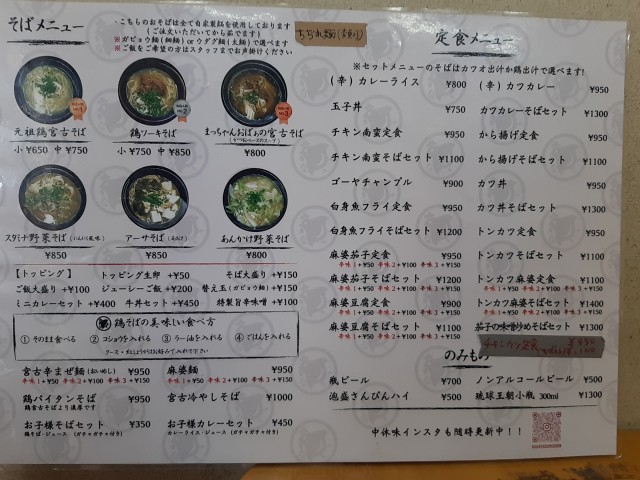 そばメニュー
・こちらのおそばは全て自家製麺を使用しております
(ご注文いただいてから茹でます)
※ガビョウ麺(細麺) or ウダグ麺(太麺)で選べます
※ご飯をご希望の方はスタッフまでお声掛けください
元祖鶏宮古そば
小 ¥650 中 ¥750
鶏ソーキそば
小 ¥750 中 ¥850
まっちゃんおばぁの宮古そば
(かつおベースのスープ)
¥800
スタミナ野菜そば(にんにく風味)
¥850
アーサそば
¥850
あんかけ野菜そば
¥850
【トッピング】 トッピング生卵 +¥50 そば大盛り +¥150
ご飯大盛り +¥100 ジューシーご飯 +¥200 替え玉(ガビョウ麺) +¥150
ミニカレーセット +¥400 牛丼セット +¥450 特製旨辛味噌 +¥100
鶏そばの美味しい食べ方
①そのまま食べる ②コショウを入れる ③ラー油を入れる ④ごはんを入れる
宮古辛まぜ麺 ¥950
辛味1+¥50 辛味2+¥100 辛味3+¥150
麻婆麺 ¥950
辛味1+¥50 辛味2+¥100 辛味3+¥150
鶏パイタンそば ¥950
鶏宮古そばより濃厚です
宮古冷やしそば ¥1000
お子様そばセット ¥350
鶏そば・ジュース (ガチャガチャ付き)
お子様カレーセット ¥450
カレーライス・ジュース (ガチャガチャ付き)
定食メニュー
※セットメニューのそばはカツオ出汁か鶏出汁で選べます!
(辛) カレーライス ¥800
玉子丼 ¥750
チキン南蛮定食 ¥950
チキン南蛮そばセット ¥1100
ゴーヤチャンプル ¥900
白身魚フライ定食 ¥950
白身魚フライそばセット ¥1200
麻婆茄子定食 ¥950
辛味1+¥50 辛味2+¥100 辛味3+¥150
麻婆茄子そばセット ¥1200
辛味1+¥50 辛味2+¥100 辛味3+¥150
麻婆豆腐定食 ¥900
辛味1+¥50 辛味2+¥100 辛味3+¥150
麻婆豆腐そばセット ¥1100
辛味1+¥50 辛味2+¥100 辛味3+¥150
(辛) カツカレー ¥950
カツカレーそばセット ¥1300
から揚げ定食 ¥950
から揚げそばセット ¥1100
カツ丼 ¥950
カツ丼そばセット ¥1300
トンカツ定食 ¥950
トンカツそばセット ¥1100
トンカツ麻婆定食 ¥1100
辛味1+¥50 辛味2+¥100 辛味3+¥150
トンカツ麻婆そばセット ¥1400
辛味1+¥50 辛味2+¥100 辛味3+¥150
茄子の味噌炒めそばセット ¥1300
チキンカツ定食
のみもの
瓶ビール ¥700
泡盛さんぴんハイ ¥500
ノンアルコールビール ¥500
琉球王朝小瓶 300ml ¥1300
中休味インスタも随時更新中!!